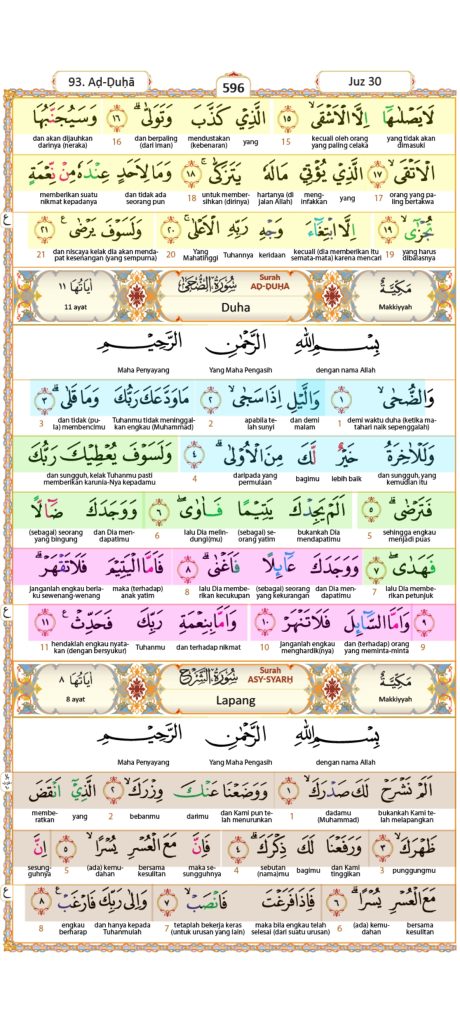 93. Aḍ-Ḍuḥā 596 Juz 30
لَا يَصْلٰىهَآ اِلَّا الْاَشْقَىۙ ١٥ الَّذِيْ كَذَّبَ وَتَوَلّٰىۗ ١٦ وَسَيُجَنَّبُهَا
yang tidak akan dimasuki kecuali oleh orang yang paling celaka 15 yang mendustakan (kebenaran) dan berpaling (dari iman) 16 dan akan dijauhkan darinya (neraka)
الْاَتْقَىۙ ١٧ الَّذِيْ يُؤْتِيْ مَالَهٗ يَتَزَكّٰىۚ ١٨ وَمَا لِاَحَدٍ عِنْدَهٗ مِنْ نِّعْمَةٍ
orang yang paling bertakwa 17 yang menginfakkan hartanya (di jalan Allah) untuk membersihkan (dirinya) 18 dan tidak ada seorang pun memberikan suatu nikmat kepadanya
تُجْزٰىٓۙ ١٩ اِلَّا ابْتِغَاۤءَ وَجْهِ رَبِّهِ الْاَعْلٰىۚ ٢٠ وَلَسَوْفَ يَرْضٰى ٢١
yang harus dibalasnya 19 kecuali (dia memberikan itu semata-mata) karena mencari keridaan Tuhannya Yang Mahatinggi 20 dan niscaya kelak dia akan mendapat kesenangan (yang sempurna) 21
مَكِّيَّةٌ Surah AḌ-ḌUḤA سُوْرَةُ الضُّحٰى اٰيَاتُهَا ١١
Makkiyyah Duha 11 ayat
بِسْمِ اللّٰهِ الرَّحْمٰنِ الرَّحِيْمِ
dengan nama Allah Yang Maha Pengasih Maha Penyayang
وَالضُّحٰىۙ ١ وَالَّيْلِ اِذَا سَجٰىۙ ٢ مَا وَدَّعَكَ رَبُّكَ وَمَا قَلٰىۗ ٣
demi waktu duha (ketika matahari naik sepenggalah) 1 dan demi malam apabila telah sunyi 2 Tuhanmu tidak meninggalkan engkau (Muhammad) dan tidak (pula) membencimu 3
وَلَلْاٰخِرَةُ خَيْرٌ لَّكَ مِنَ الْاُوْلٰىۗ ٤ وَلَسَوْفَ يُعْطِيْكَ رَبُّكَ
dan sungguh, yang kemudian itu lebih baik bagimu daripada yang permulaan 4 dan sungguh, kelak Tuhanmu pasti memberikan karunia-Nya kepadamu
فَتَرْضٰىۗ ٥ اَلَمْ يَجِدْكَ يَتِيْمًا فَاٰوٰىۖ ٦ وَوَجَدَكَ ضَاۤلًّا
sehingga engkau menjadi puas 5 bukankah Dia mendapatimu (sebagai) seorang yatim lalu Dia melindungi(mu) 6 dan Dia mendapatimu (sebagai) seorang yang bingung
فَهَدٰىۖ ٧ وَوَجَدَكَ عَاۤىِٕلًا فَاَغْنٰىۗ ٨ فَاَمَّا الْيَتِيْمَ فَلَا تَقْهَرْۗ
lalu Dia memberikan petunjuk 7 dan Dia mendapatimu (sebagai) seorang yang kekurangan lalu Dia memberikan kecukupan 8 maka (terhadap) anak yatim Janganlah engkau berlaku sewenang-wenang
٩ وَاَمَّا السَّاۤىِٕلَ فَلَا تَنْهَرْۗ ١٠ وَاَمَّا بِنِعْمَةِ رَبِّكَ فَحَدِّثْ ١١
9 dan (terhadap) orang yang meminta-minta Janganlah engkau menghardik(nya) 10 dan terhadap nikmat Tuhanmu hendaklah engkau nyatakan (dengan bersyukur) 11
مَكِّيَّةٌ Surah ASY-SYARḤ سُوْرَةُ الشَّرْحِ اٰيَاتُهَا ٨
Makkiyyah Lapang 8 ayat
بِسْمِ اللّٰهِ الرَّحْمٰنِ الرَّحِيْمِ
dengan nama Allah Yang Maha Pengasih Maha Penyayang
اَلَمْ نَشْرَحْ لَكَ صَدْرَكَۙ ١ وَوَضَعْنَا عَنْكَ وِزْرَكَۙ ٢ الَّذِيْٓ اَنْقَضَ
bukankah Kami telah melapangkan dadamu (Muhammad) 1 dan Kami pun telah menurunkan darimu bebanmu 2 yang memberatkan
ظَهْرَكَۙ ٣ وَرَفَعْنَا لَكَ ذِكْرَكَۗ ٤ فَاِنَّ مَعَ الْعُسْرِ يُسْرًاۙ ٥ اِنَّ
punggungmu 3 dan Kami tinggikan bagimu sebutan (nama)mu 4 maka sesungguhnya bersama kesulitan (ada) kemudahan 5 sesungguhnya
مَعَ الْعُسْرِ يُسْرًاۗ ٦ فَاِذَا فَرَغْتَ فَانْصَبْۙ ٧ وَاِلٰى رَبِّكَ فَارْغَبْ ٨
bersama kesulitan (ada) kemudahan 6 maka bila engkau telah selesai (dari suatu urusan) tetaplah bekerja keras (untuk urusan yang lain) 7 dan hanya kepada Tuhanmulah engkau berharap 8